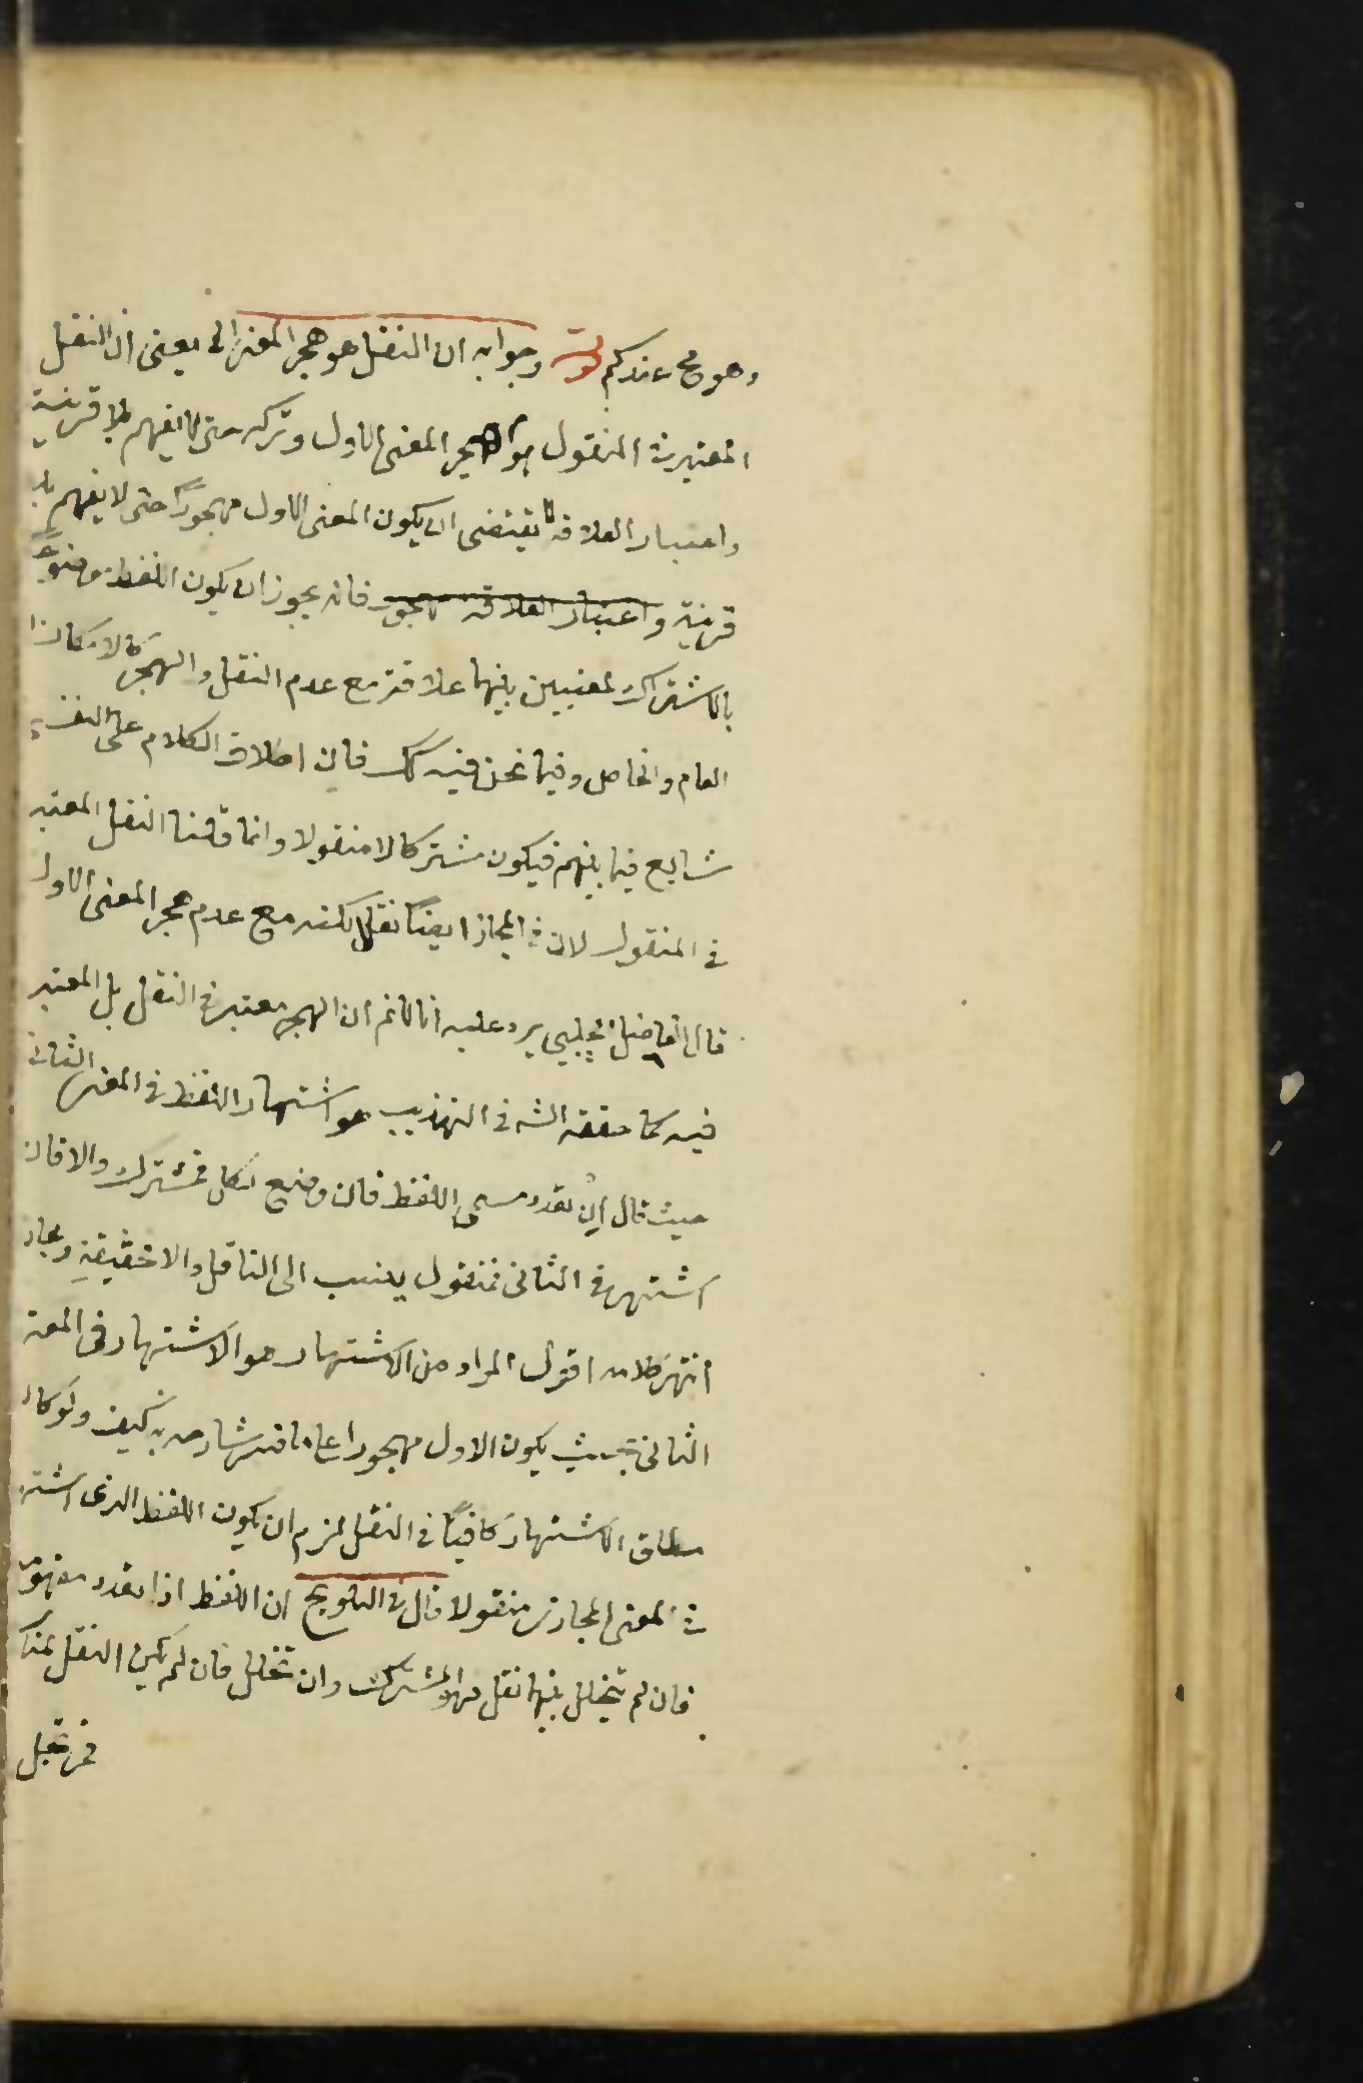 وهو مح عندكم قوله وجوابه ان النقل هو هجر المعنى الخ يعنى ان النقل
المعتبر فى المنقول هو هجر المعنى الاول وتركه حتى لا يفهم بلا قرينة
واعتبار العلاقة لا يقتضى ان يكون المعنى الاول مهجوراً حتى لا يفهم بلا
قرينة واعتبار العلاقة فانه يجوز ان يكون اللفظ موضوعاً
بالاشتراك لمعنيين بينهما علاقة مع عدم النقل والهجر كالامكان
العام والخاص وفيما نحن فيه كك فان اطلاق الكلام على
شايع فيما بينهم فيكون مشتركا لا منقولا وانما قلنا النقل المعتبر
فى المنقول لان فى المجاز ايضاً نقل لكنه مع عدم هجر المعنى الاول
قال الفاضل الچلبى يرد عليه انا لانم ان الهجر معتبر فى النقل بل المعتبر
فيه كما حققه الشه فى التهذيب هو اشتهار اللفظ فى المعنى الثانى
حيث قال ان تعدد مسمى اللفظ فان وضع لكل فمشترك والا فان
اشتهر فى الثانى فمنقول ينسب الى الناقل والا فحقيقة ومجاز
انتهى كلامه اقول المراد من الاشتهار هو الاشتهار فى المعنى
الثانى بحيث يكون الاول مهجورا على ما فسر شارحه به كيف ولو كان
مطلق الاشتهار كافياً فى النقل لزم ان يكون اللفظ الذى اشتهر
فى المعنى المجازى منقولا قال فى التلويح ان اللفظ اذا تعدد مفهومه
فان لم يتخلل بينهما نقل فهو المشترك وان تخلل فان لم يكن النقل لمناسبة
فمرتجل